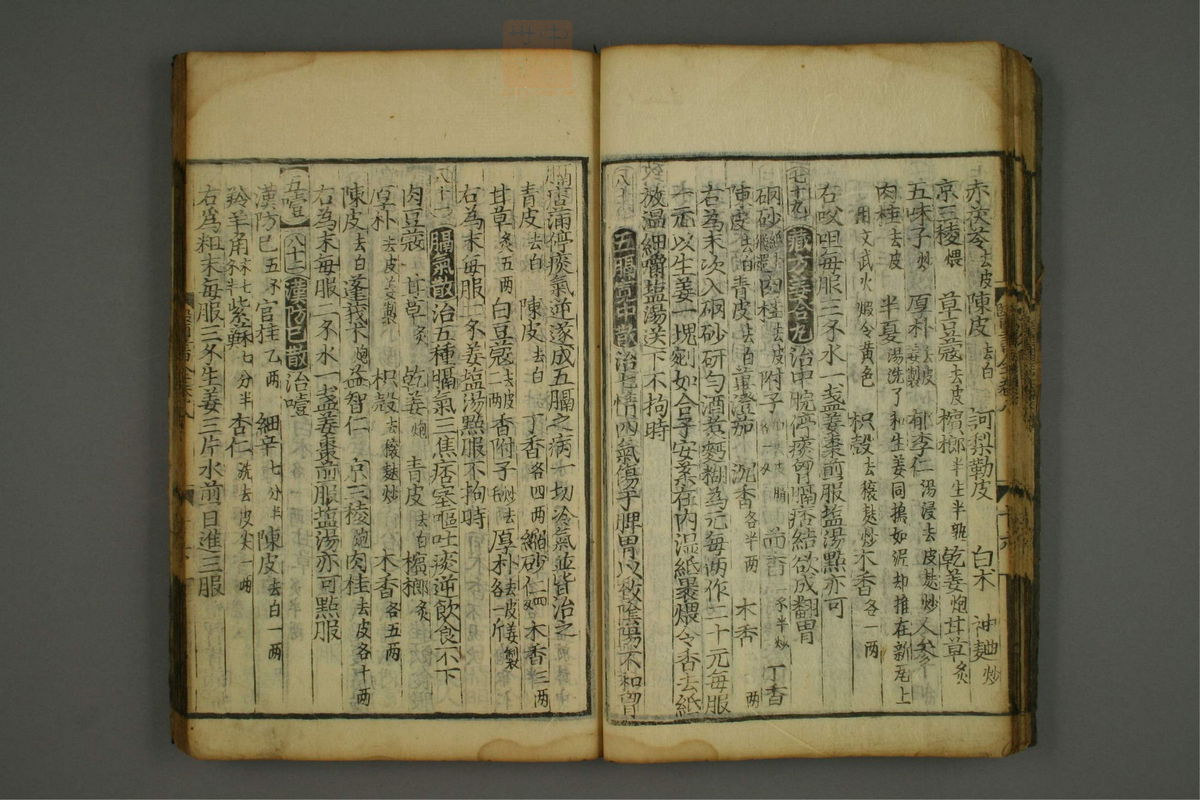 赤茯苓去皮 陳皮去白 訶梨勒皮 白朮 神麯炒
京三稜煨 草豆蔻去皮 檳榔半生半熟 乾姜炮 甘草炙
五味子炒 厚朴去皮姜製 郁李仁湯浸去皮麩炒 人參
肉桂去皮 半夏湯洗了和生姜同搗如泥却推在新瓦上
用文武火煆令黄色 枳殼去穰麸炒 木香各一两
右㕮咀每服三錢水一盞姜棗煎服塩湯點亦可
七十九 藏方姜合丸 治中脘停痰胃膈痞結欲成翻胃
硇砂 肉桂去皮 附子 茴香炒 丁香
陳皮去白 青皮去白 蓽澄茄 沉香各半两 木香
右為末次入硇砂研勻酒煮麪糊為元每两作二十元每服
一元以生姜一塊剜如合子安藥在内湿紙裹煨令香去紙
放温細嚼塩湯送下不拘時
八十 五膈寛中散 治七情四氣傷于脾胃以致陰陽不和胃
膈痞滿停痰氣逆遂成五膈之病一切冷氣並皆治之
青皮去白 陳皮去白 丁香各四两 縮砂 木香三两
甘草炙五两 白豆蔻去皮二两 香附子炒去毛 厚朴去皮姜製各一斤
右為末每服二錢姜塩湯點服不拘時
八十一 膈氣散 治五種膈氣三焦痞塞嘔吐痰逆飲食不下
肉豆蔻 甘草炙 乾姜炮 青皮去白 檳榔炙
厚朴去皮姜製 枳殼去穰麸炒 木香各五两
陳皮去白 蓬莪朮炮 益智仁 京三稜炮 肉桂去皮各十两
右為末每服二錢水一盞姜棗煎服塩湯亦可點服
五噎 八十二 漢防已散 治噎
漢防已五錢 官桂乙两 細辛七分半 陳皮去白一两
羚羊角末七錢半 紫蘇七分半 杏仁洗去皮尖一两
右為粗末每服三錢生姜三片水煎日進三服